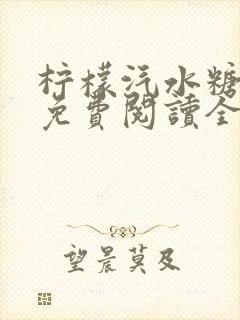 柠檬汽水糖
免費閱讀全
望晨莫及